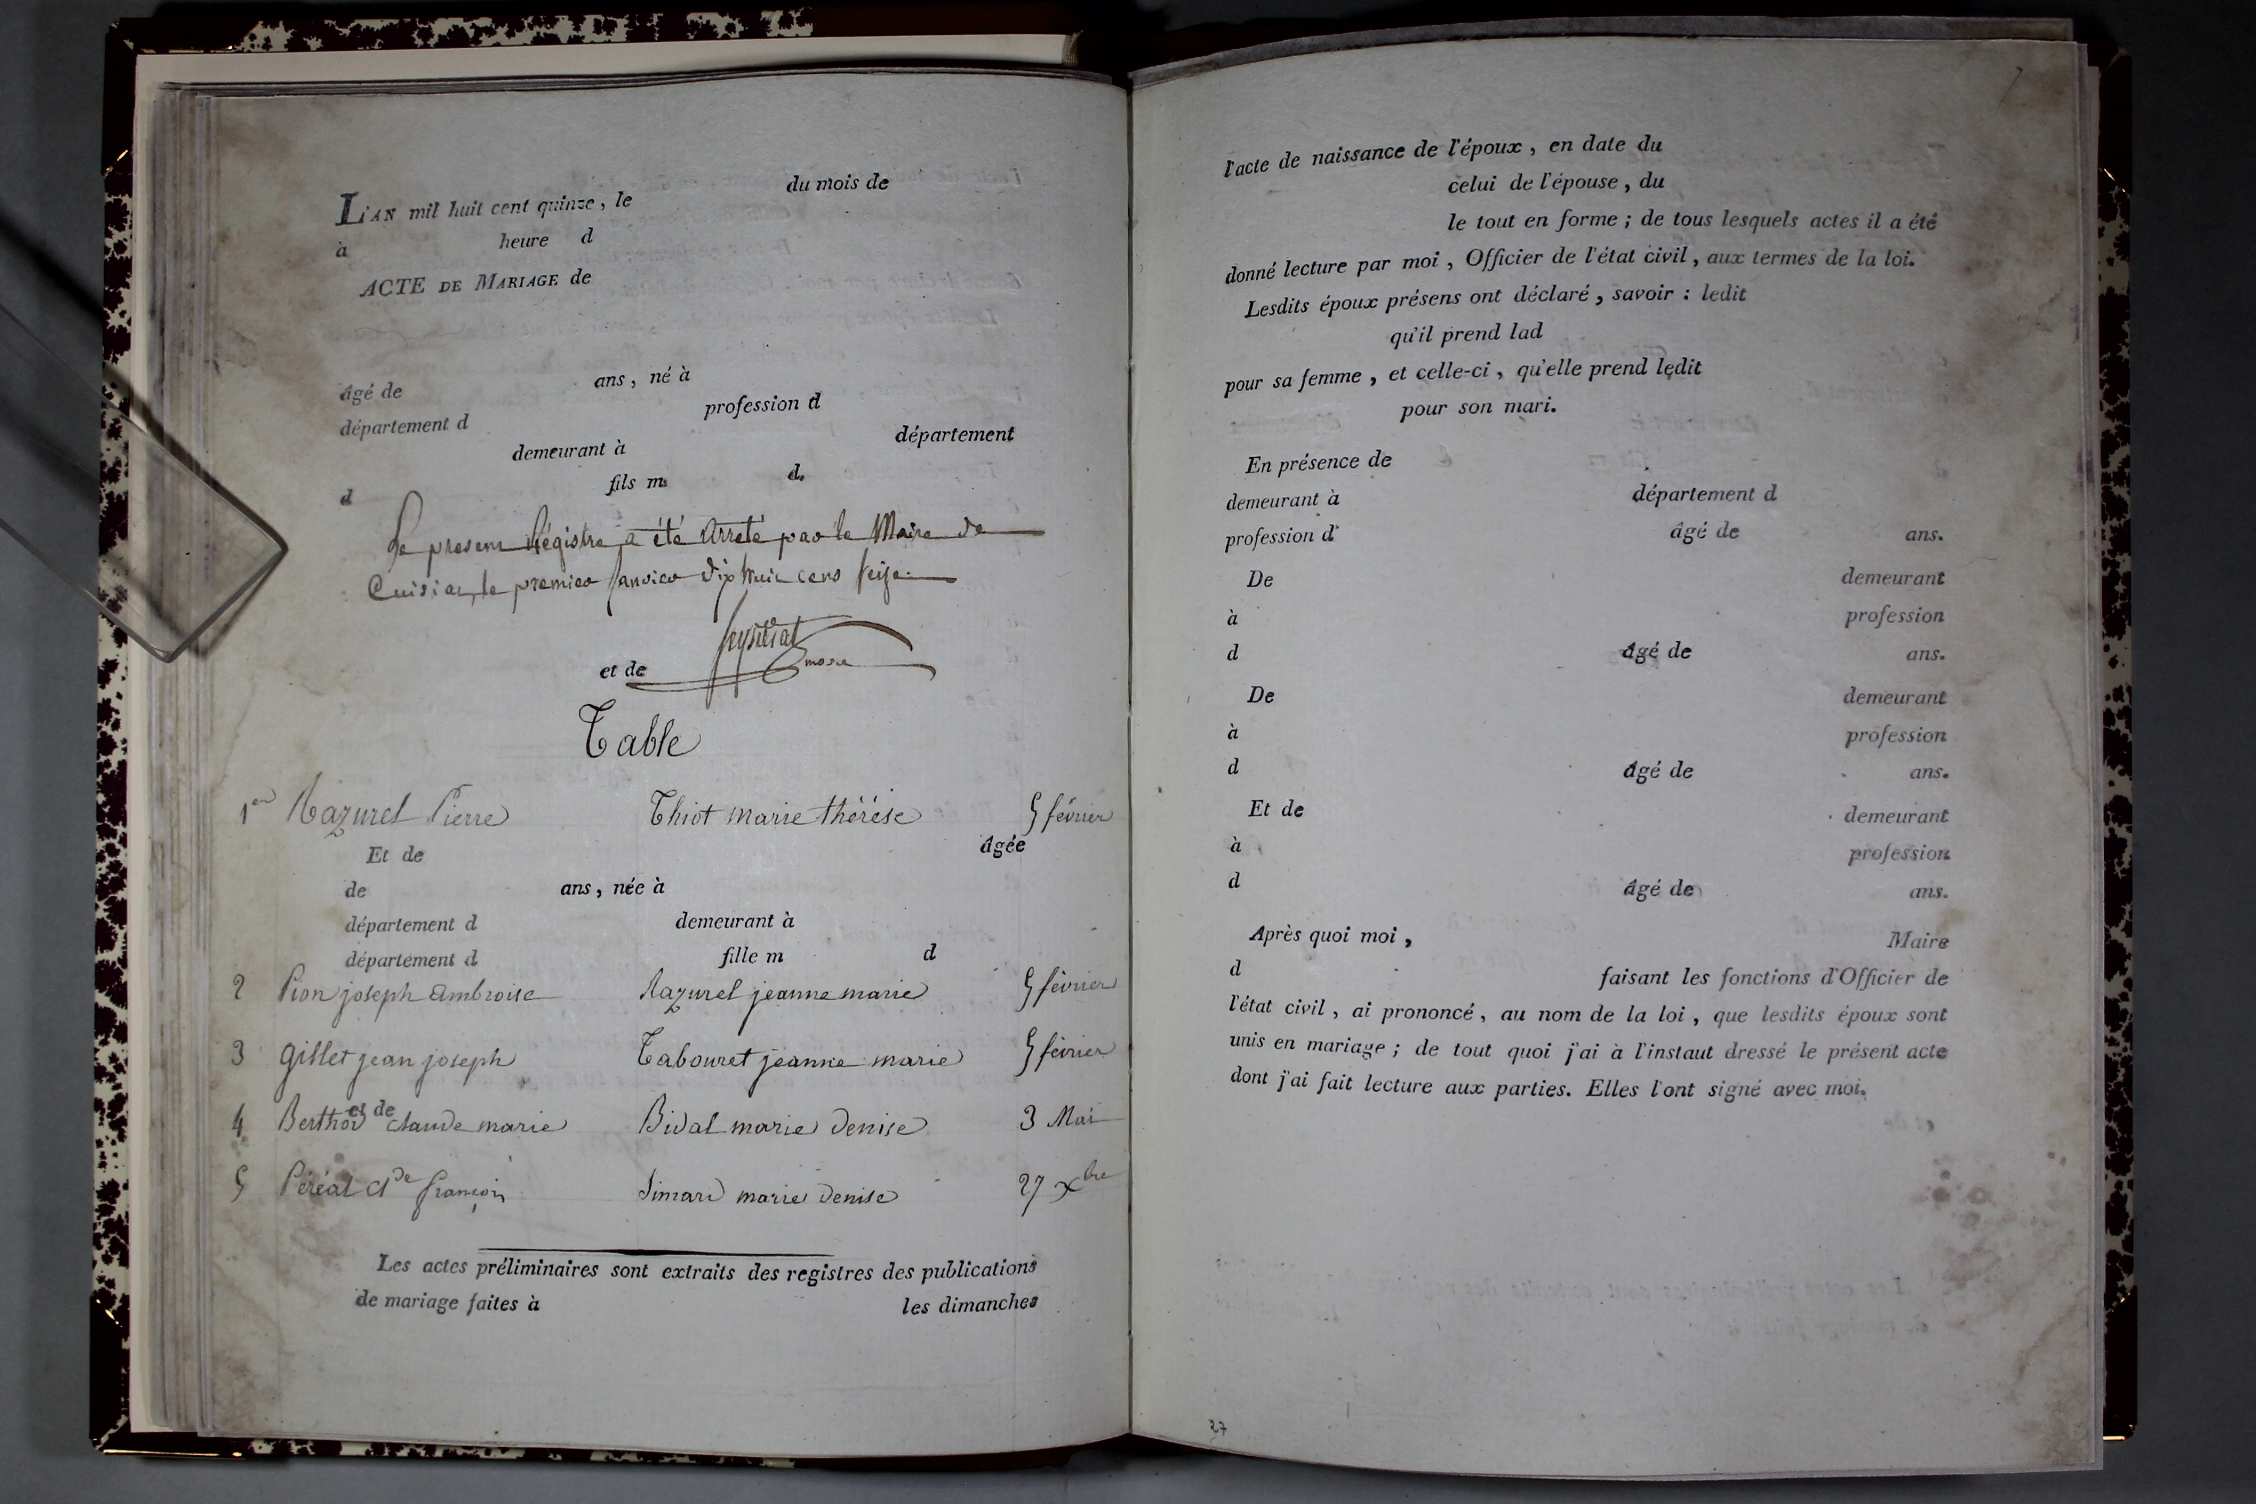 L'AN mil huit cent quinze, le du mois de
à heure d
ACTE DE MARIAGE de
âgé de ans, né à
département d profession d
demeurant à département
d fils m d
Le present Régistre a été arreté par le Maire de
Cuisia, le premier Janvier dix huit cens seize.
et de
Table
1er Mazurel Pierre Thiot marie thérése 5 février
Et de âgée
de ans, née à
département d demeurant à
département d fille m d
2 Pion joseph Ambroise Mazurel jeanne marie 5 février
3 gillet jean joseph Tabouret jeanne marie 5 février
et de
4 Berthod Claude marie Bidal marie denise 3 Mai
5 Péréal Cl de françois Simard marie denise 27 Xbre
Les actes préliminaires sont extraits des registres des publications
de mariage faites à les dimanches
l'acte de naissance de l'époux, en date du
celui de l'épouse, du
le tout en forme ; de tous lesquels actes il a été
donné lecture par moi, Officier de l'état civil, aux termes de la loi.
Lesdits époux présens ont déclaré, savoir : ledit
qu'il prend lad
pour sa femme, et celle-ci, qu'elle prend ledit
pour son mari.
En présence de
demeurant à département d
profession d âgé de ans.
De demeurant
à profession
d âgé de ans.
De demeurant
à profession
d âgé de ans.
Et de demeurant
à profession
d âgé de ans.
Après quoi moi, Maire
d faisant les fonctions d'Officier de
l'état civil, ai prononcé, au nom de la loi, que lesdits époux sont
unis en mariage ; de tout quoi j'ai à l'instaut dressé le présent acte
dont j'ai fait lecture aux parties. Elles l'ont signé avec moi.
27